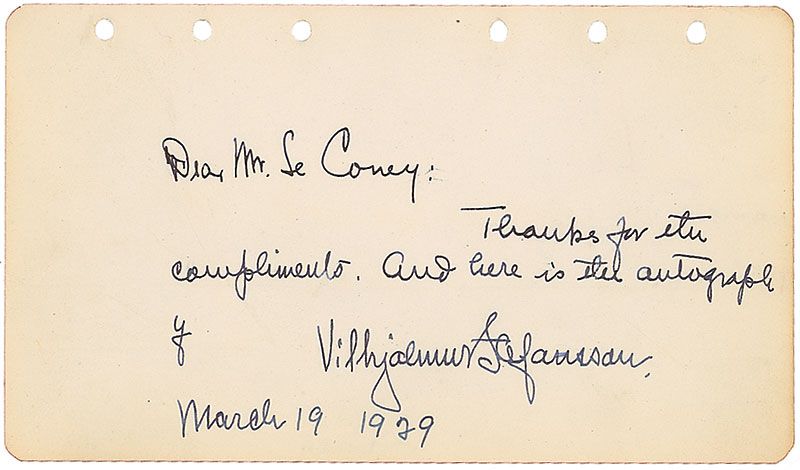 Dear Mr. Le Coney:
Thanks for the
compliments. And here is the autograph
of Vilhjalmur Stefansson.
March 19 1929